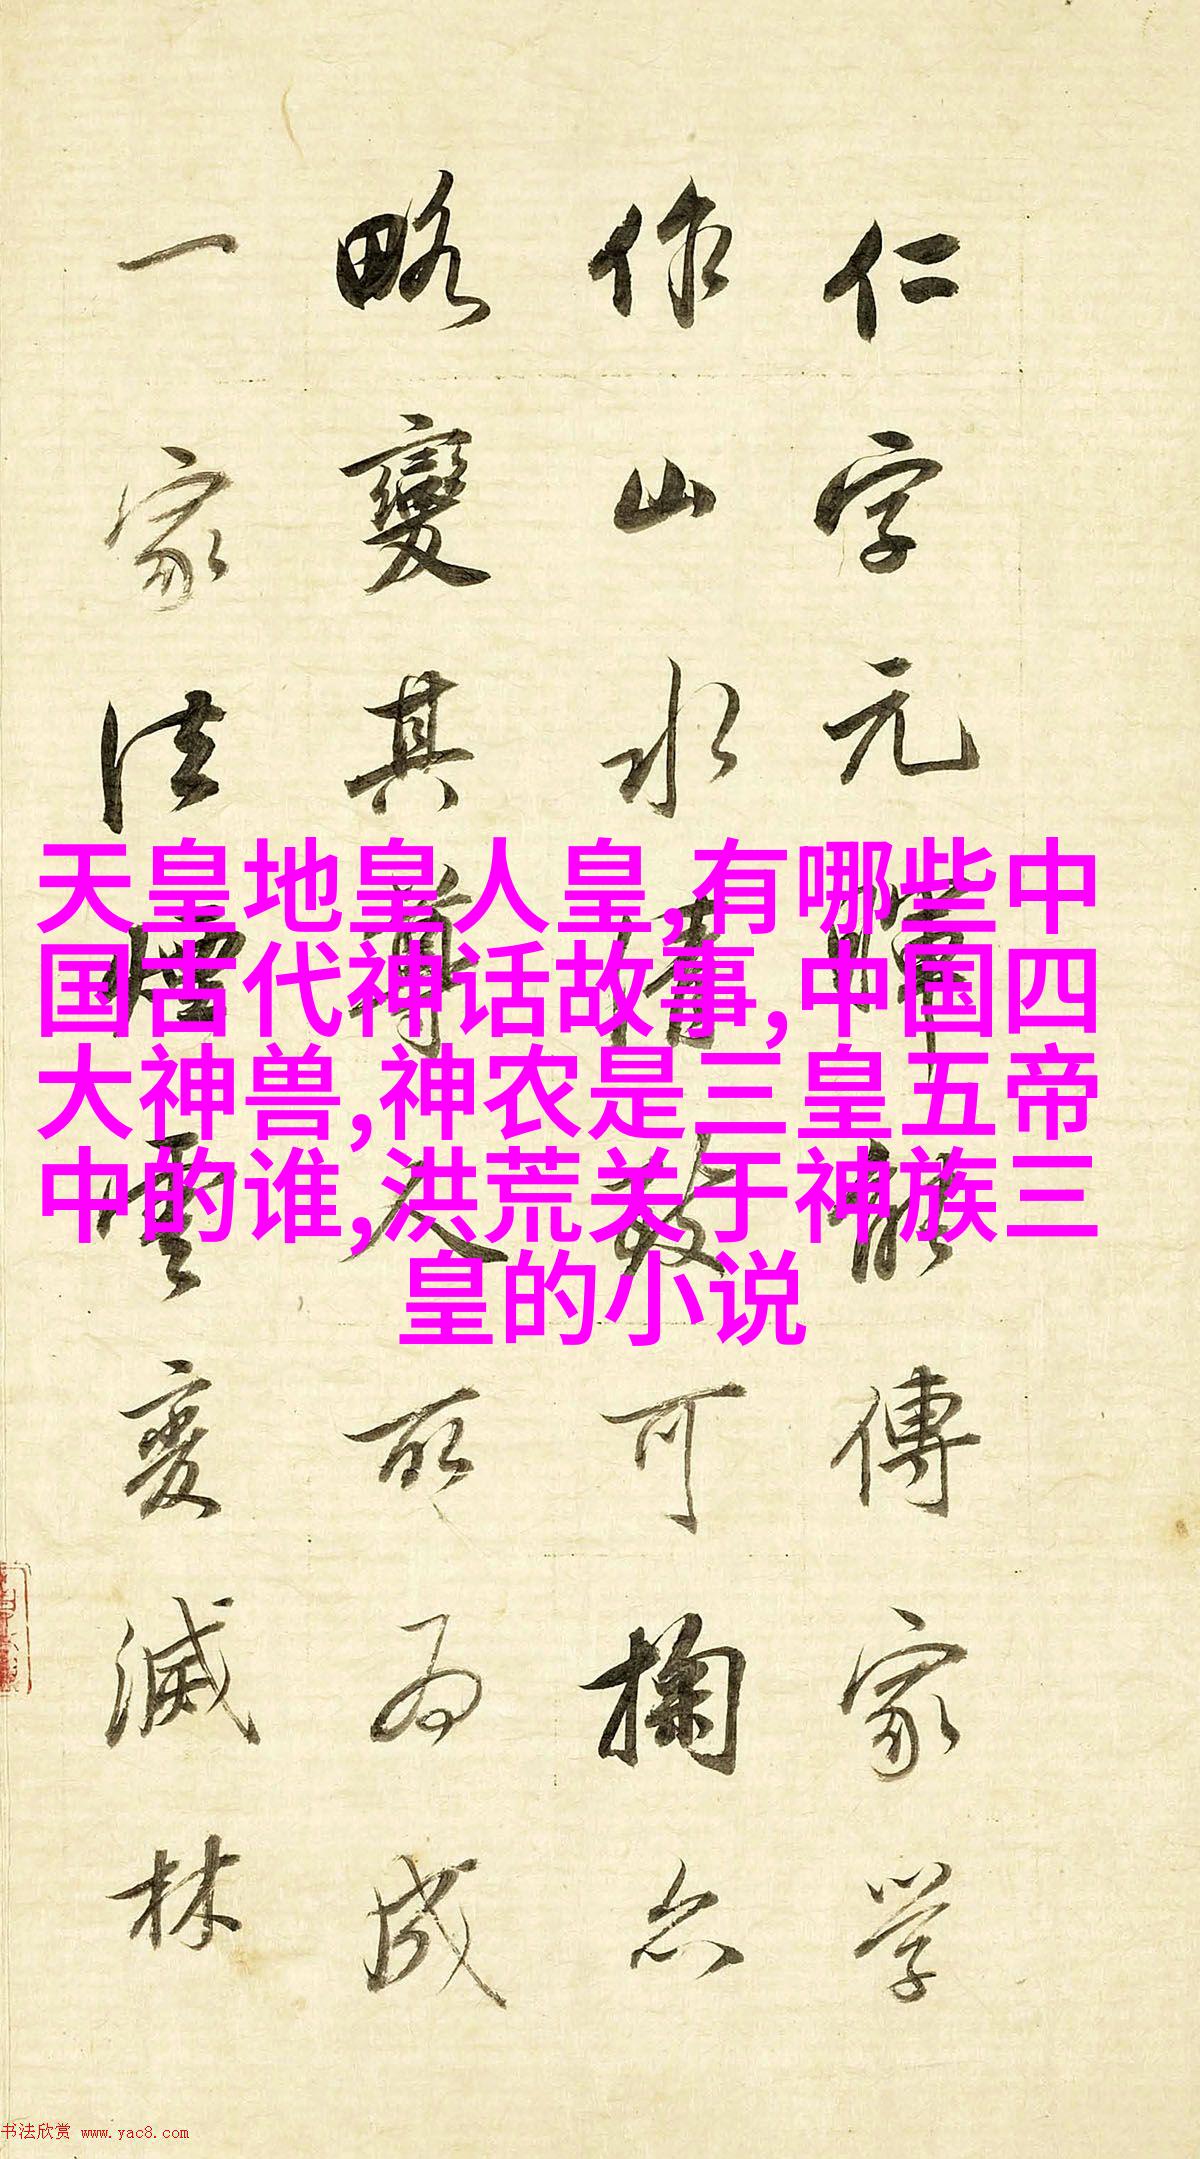 仁字元暉能傳家學
作山水清致可掬亦
略變其尊人所為成
一家法煙雲變滅林
天皇地皇人皇,有哪些中
国古代神话故事,中国四
大神兽,神农是三皇五帝
中的谁,洪荒关于神族三
皇的小说
书法欣赏 www.yac8.com